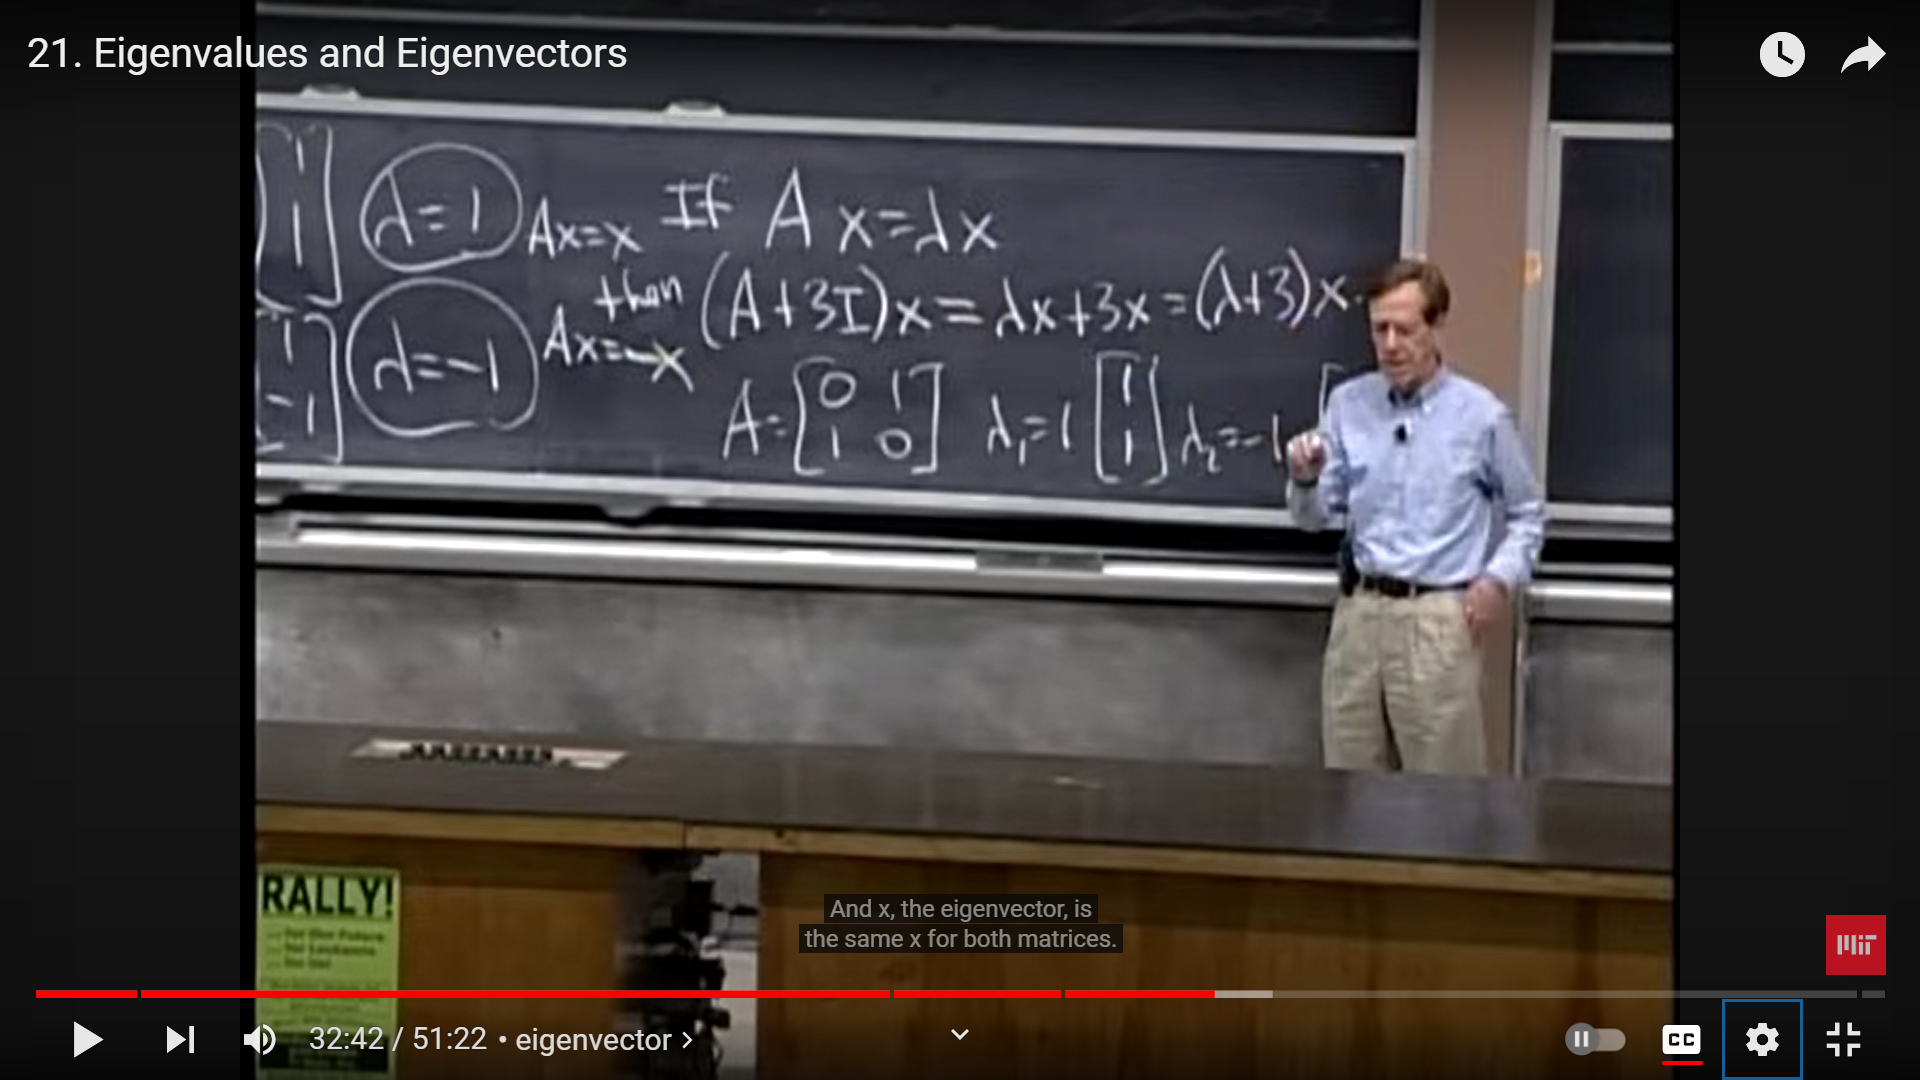 21. Eigenvalues and Eigenvectors
[1 1] λ=1 Ax=x
[1 -1] λ=-1 Ax=-x
If Ax=λx
then (A+3I)x=λx+3x=(λ+3)x.
A=[0 1
1 0] λ₁=1 [1
1] λ₂=-1
RALLY!
And x, the eigenvector, is
the same x for both matrices.
MIT
32:42 / 51:22 • eigenvector >
CC